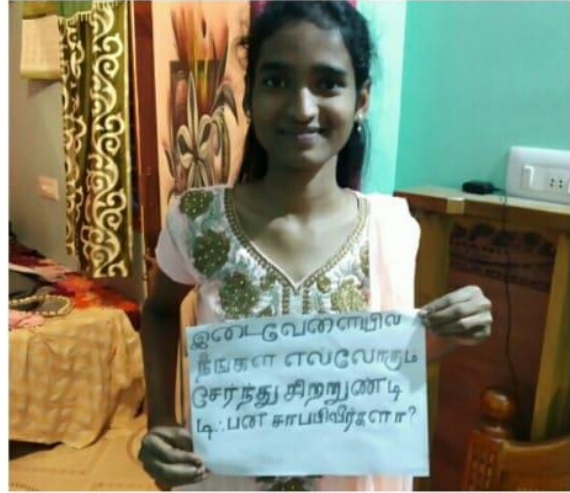 இடைவேளையில
நீங்கள எல்லோரும
சேர்ந்து சிறறுண்டி
டி.:பன சாபபிடுவீர்களா?